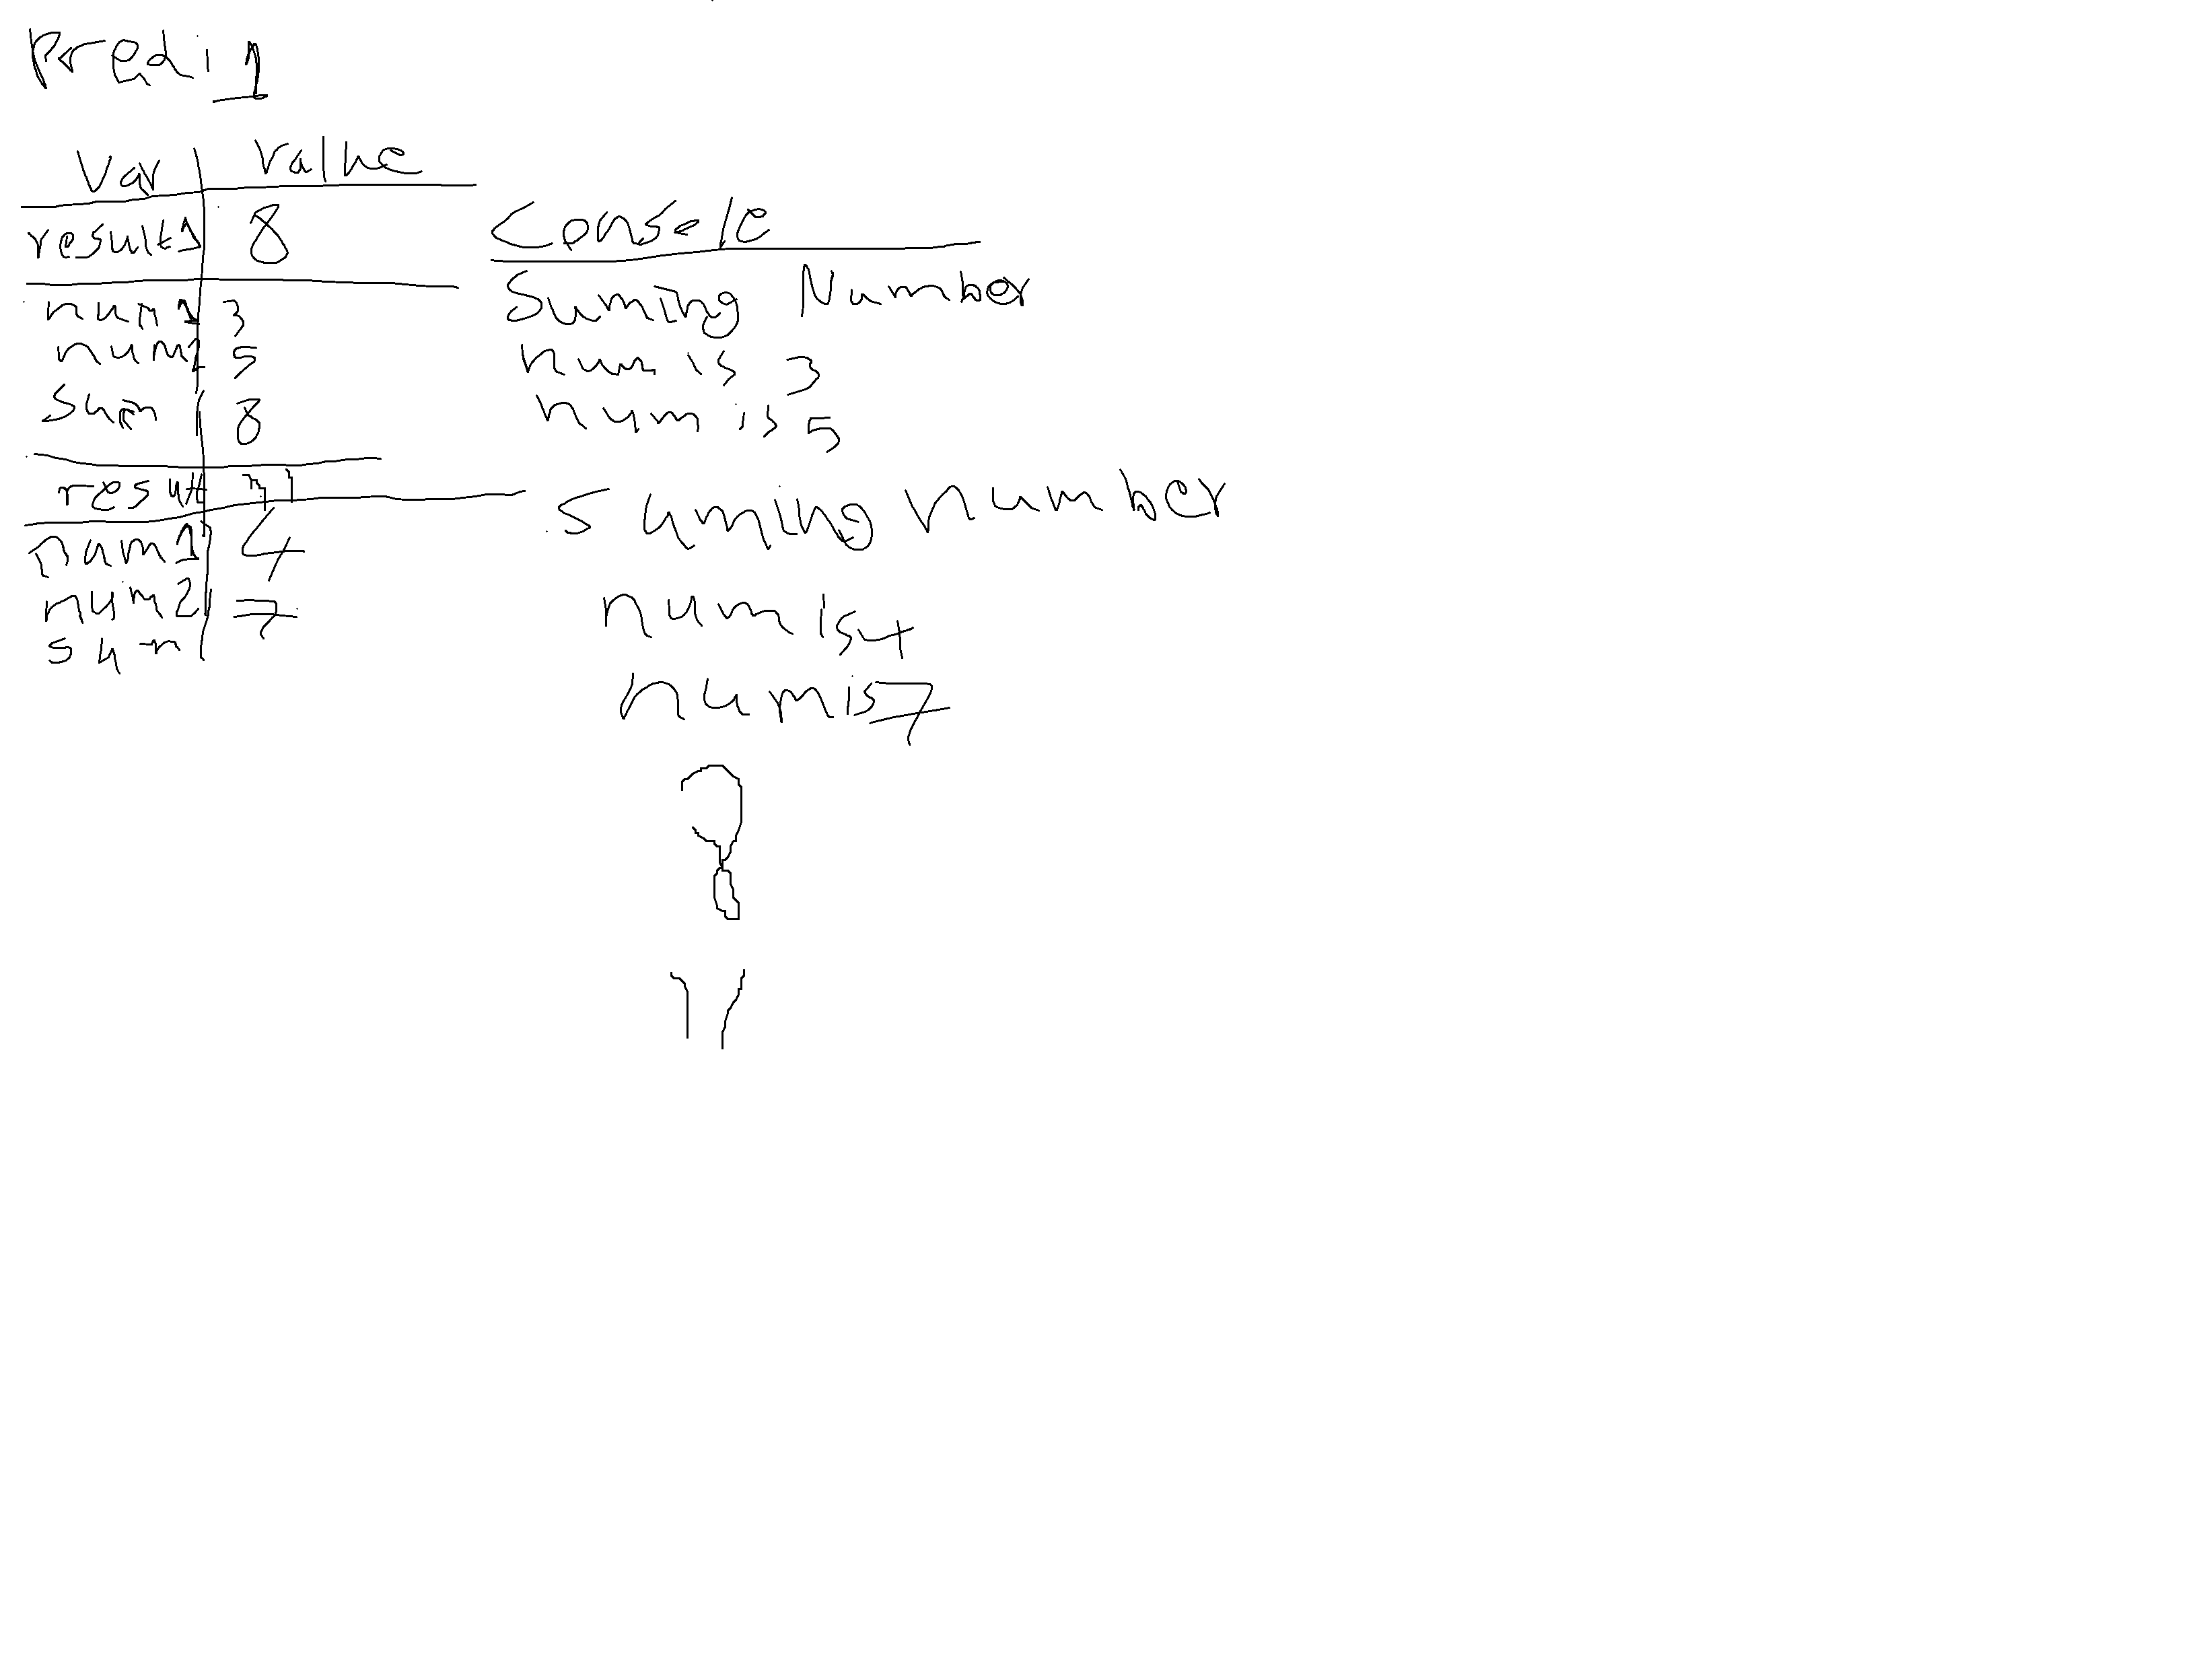 Predi 1
Var Value
result1 8
num1 3
num2 5
sum 8
result 11
num1 4
num2 7
sum
Console
Suming Number
num is 3
num is 5
suming number
num is 4
num is 7
8
11